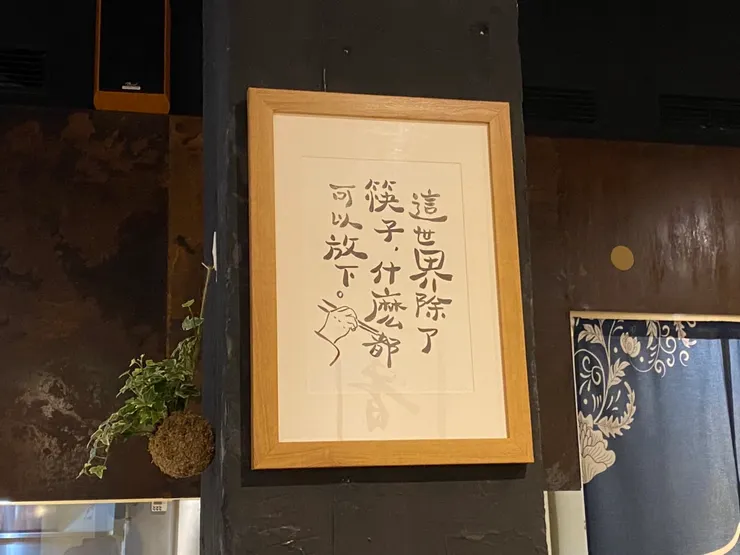 這世界除了
筷子，什麼都
可以放下。
香